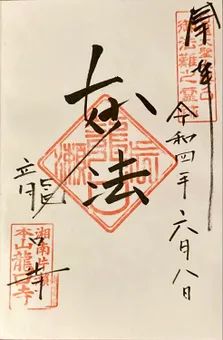 奉拝
令和四年六月八日
妙法
龍口寺
湘南片瀬
本山龍口寺